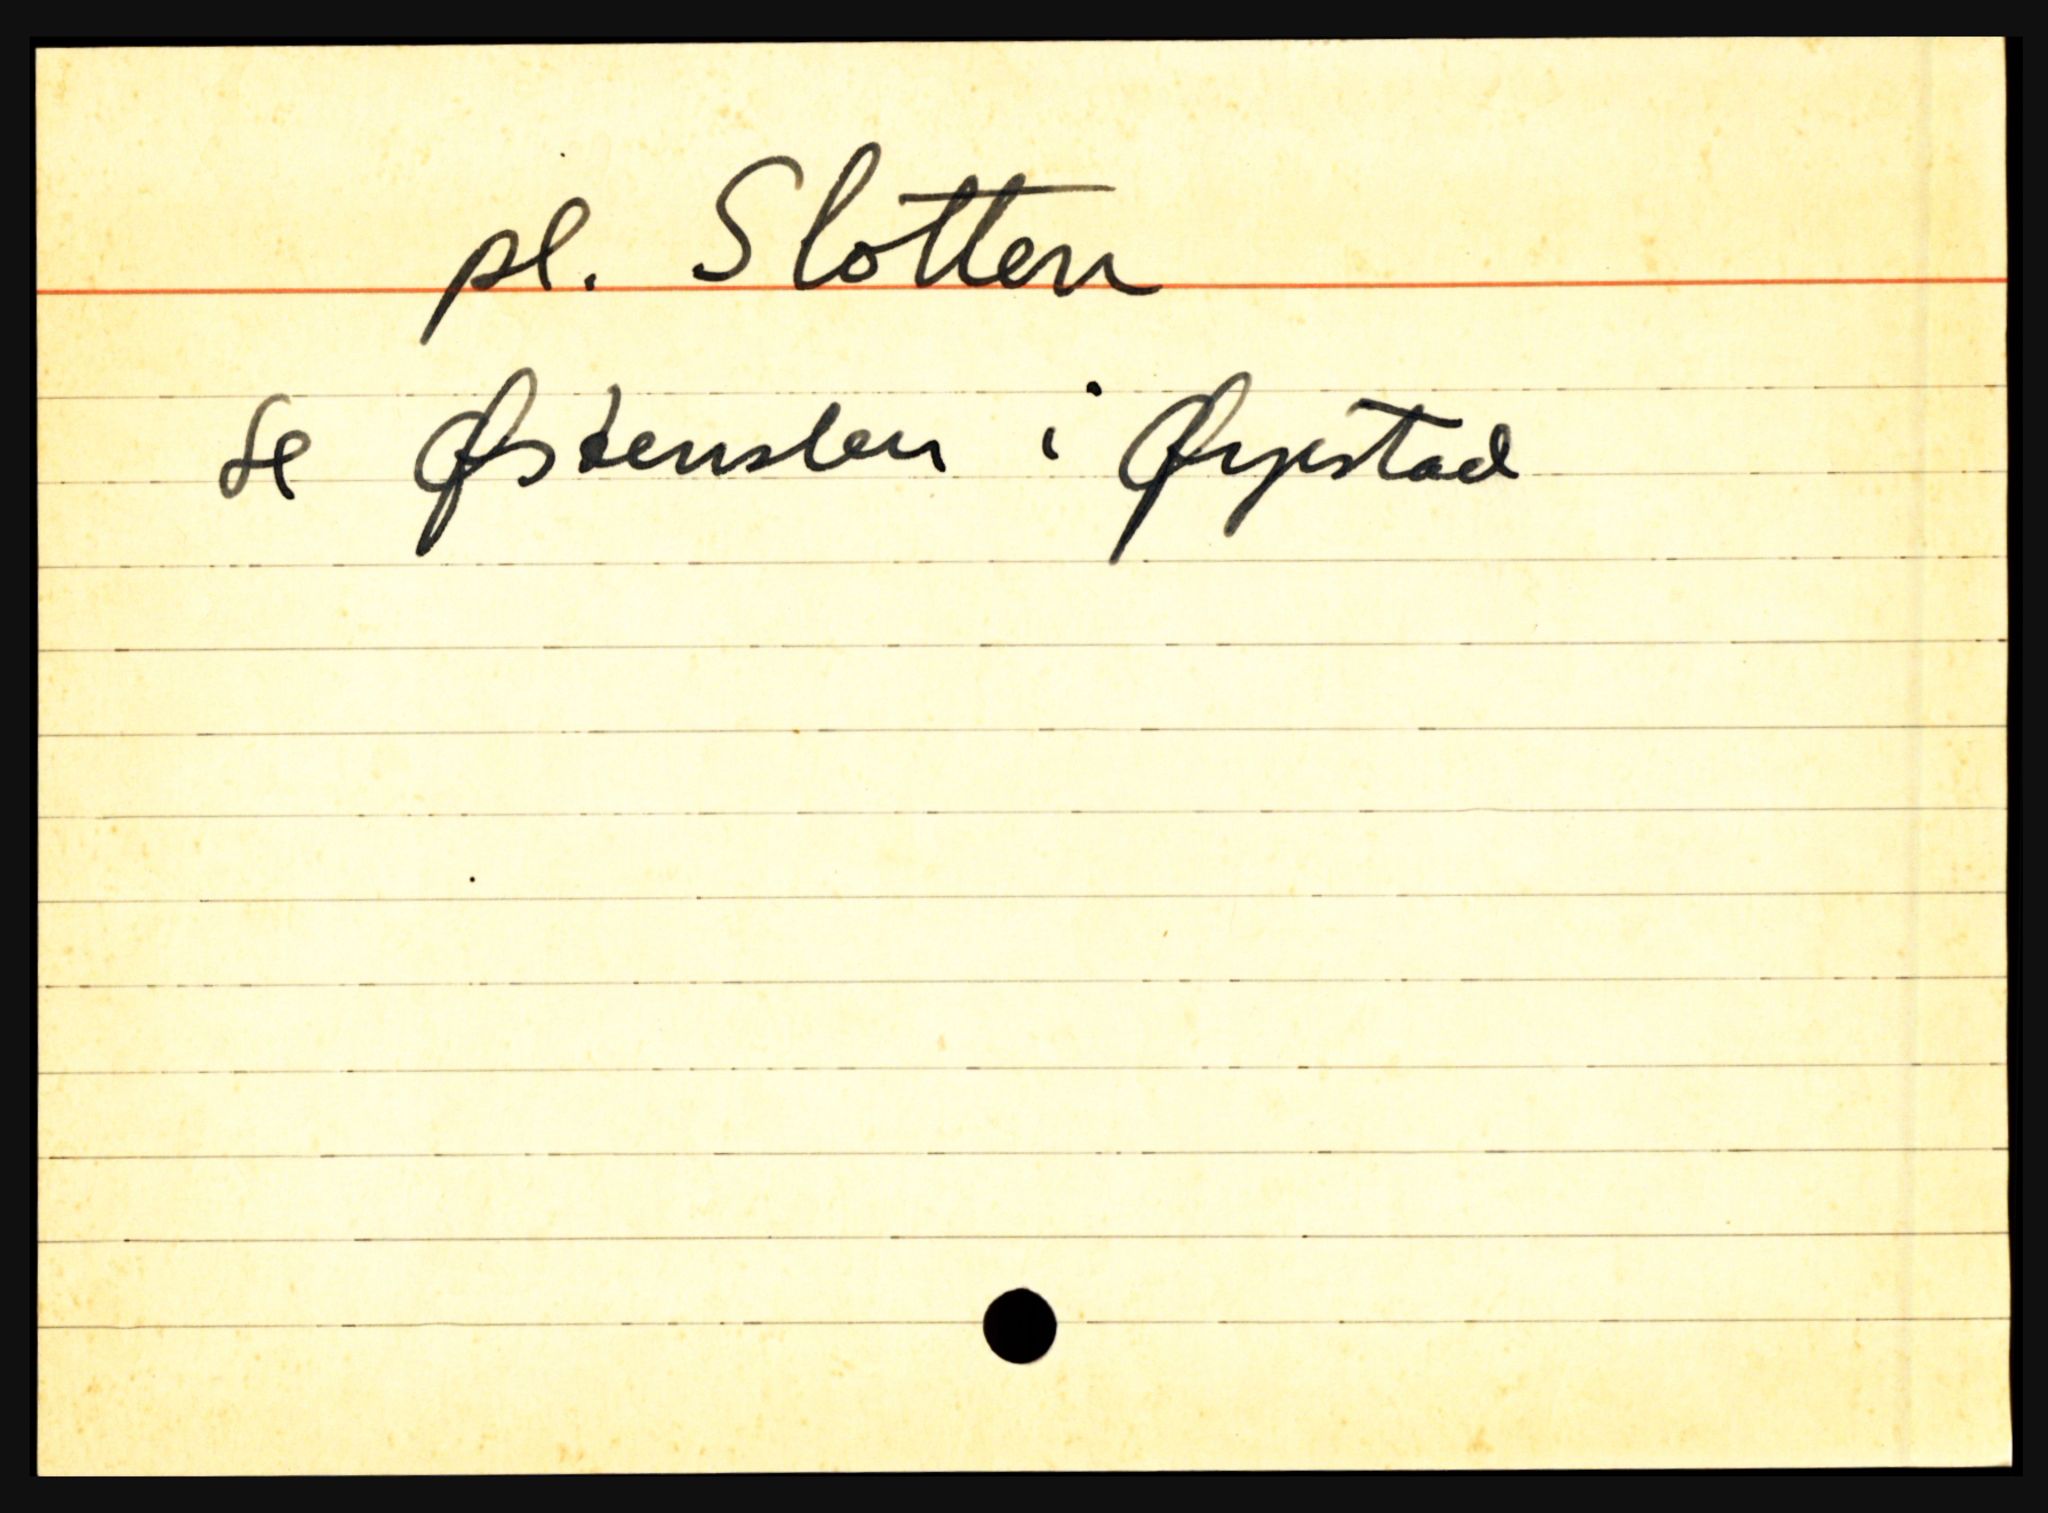 pl. Slotten
se Østenslen i Ørpstad